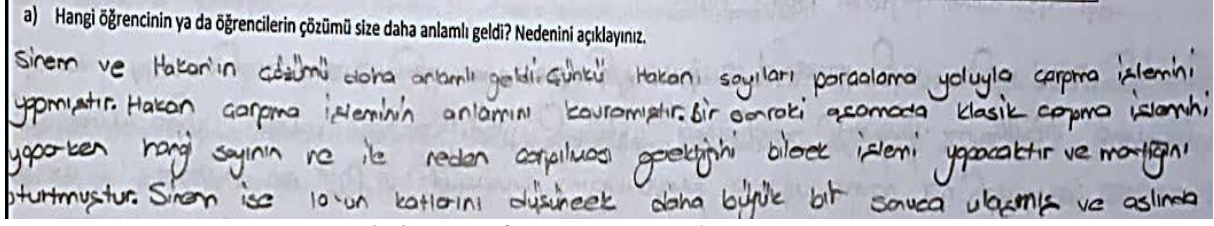 a) Hangi öğrencinin ya da öğrencilerin çözümü size daha anlamlı geldi? Nedenini açıklayınız.
Sinem ve Hakan'ın çözümü daha anlamlı geldi. Çünkü Hakan, sayıları parçalama yoluyla çarpma işlemini
yapmıştır. Hakan çarpma işleminin anlamını kavramıştır. bir sonraki aşamada klasik çarpma işlemini
yaparken hangi sayının ne ile neden çarpılması gerektiğini bilerek işlemi yapacaktır ve mantığını
oturtmuştur. Sinem ise 10'un katlarını düşünerek daha büyük bir sonuca ulaşmış ve aslında